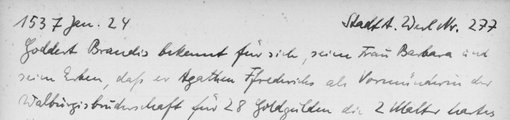 1537 Jan. 24 Stadt A. Werl Nr. 277
Goddert Brandis bekennt für sich, seine Frau Barbara und
seine Erben, daß er Agathen Ffrederichs als Vormünderin der
Walburgisbruderschaft für 28 Goldgulden die 2 Malter hartes